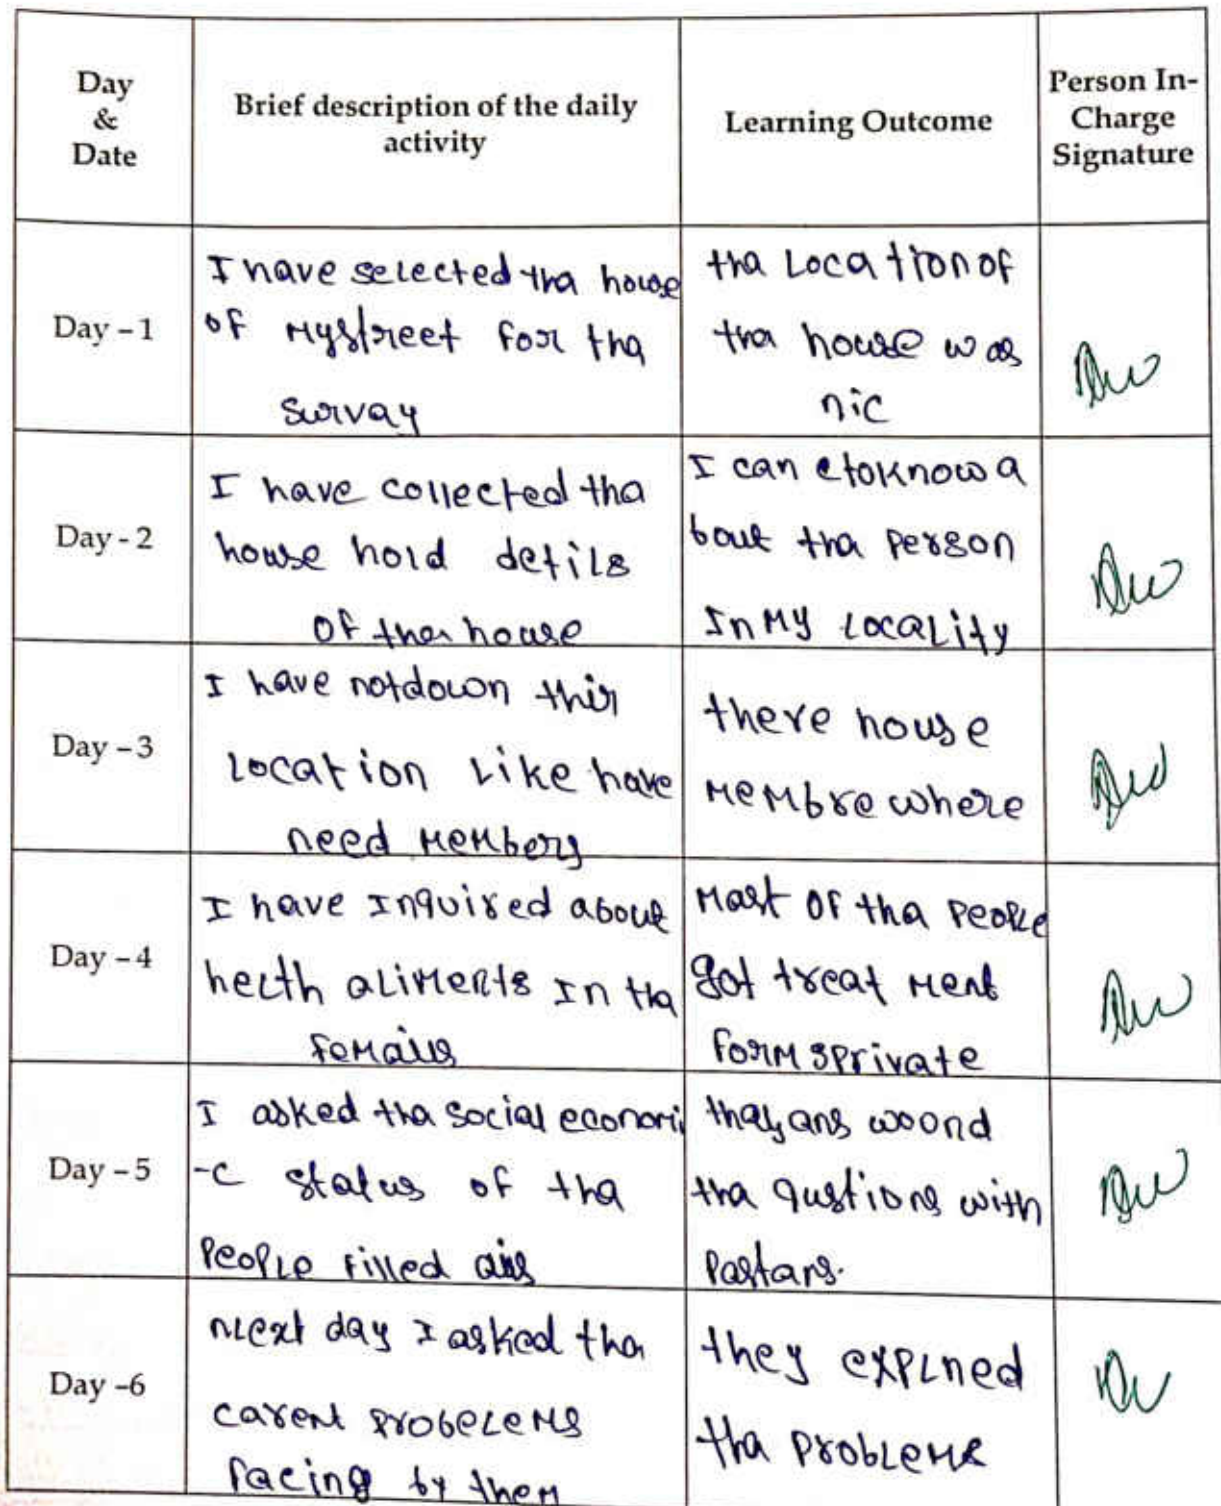 Day
&
Date
Brief description of the daily
activity
Learning Outcome
Person In-
Charge
Signature
Day – 1
I have selected tha house
of Mystreet for tha
survay
tha Location of
tha house was
nic
Day - 2
I have collected tha
house hold detils
of tha house
I can etoknow a
bout tha Person
In My Locality
Day – 3
I have notdown thir
Location Like have
need Members
there house
Membre where
Day – 4
I have Inquired about
helth aliments In tha
Mast of tha People
got treat ment
form sprivate
Day – 5
I asked tha social economi
-c status of tha
People filled
thay ans woond
tha qustions with
Pastans.
Day -6
next day I asked tha
carent probelems
facing by them
they expLned
tha probLems